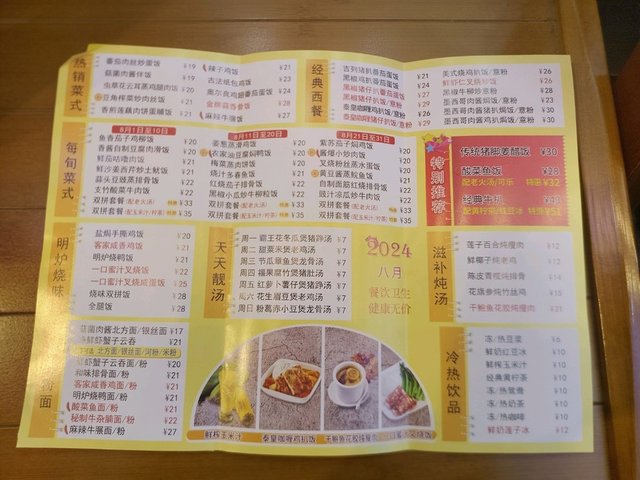 热销菜式
番茄肉丝炒蛋饭 ¥19
菇菌肉酱伴饭 ¥19
虫草花云耳蒸鸡腿肉饭 ¥20
豆角榨菜炒肉丝饭 ¥21
香煎莲藕肉饼重脯饭 ¥21
辣子鸡饭 ¥21
古法纸包鸡饭 ¥23
奥尔良鸡翅番茄饭 ¥24
金牌蒜香骨饭 ¥28
麻辣牛𦟌饭 ¥27
经典西餐
吉列猪扒番茄蛋饭 ¥21
黑椒鸡扒番茄蛋饭 ¥24
黑椒猪仔扒炒蛋饭
泰皇咖喱鸡扒饭/粉
泰皇咖喱猪仔扒饭/粉 ¥29
美式烧鸡扒饭/意粉 ¥26
鲜虾仁叉烧炒饭 ¥26
黑椒牛柳炒意粉 ¥28
墨西哥肉酱焗饭/意粉 ¥23
墨西哥肉酱鸡扒焗饭/意粉 ¥30
每旬菜式
8月1日至10日
鱼香茄子鸡柳饭 ¥20
香酱自制豆腐肉滑饭 ¥20
鲜茄咕噜肉饭 ¥21
鲜沙姜西芹炒土鱿饭 ¥21
蒜头豆豉蒸排骨饭 ¥22
支竹酸菜牛肉饭 ¥22
双拼套餐(配老火汤) 特惠 ¥33
双拼套餐(配玉米汁/柠茶) 特惠 ¥35
8月11日至20日
姜葱蒸滑鸡饭 ¥20
农家油豆腐焖鸭饭 ¥20
梅菜蒸肉饼饭 ¥20
烧汁多春鱼饭 ¥21
红烧茄子排骨饭 ¥22
黑椒小瓜炒牛柳粒饭 ¥22
双拼套餐(配老火汤) 特惠 ¥33
双拼套餐(配玉米汁/柠茶) 特惠 ¥35
8月21日至31日
紫苏茄子焖鸡饭 ¥20
酱爆小炒肉饭 ¥20
叉烧粉丝蒸水蛋饭 ¥20
黄豆酱蒸鲩鱼饭 ¥21
自制面筋红烧排骨饭 ¥22
豉汁凉瓜炒牛肉饭 ¥22
双拼套餐(配老火汤) 特惠 ¥33
双拼套餐(配玉米汁/柠茶) 特惠 ¥35
特别推荐
传统猪脚姜醋饭 ¥30
酸菜鱼饭 ¥28
配老火汤/可乐 特惠¥32
经典牛扒 ¥48
配黄柠茶/红豆冰 特惠¥51
明炉烧味
盐焗手撕鸡饭 ¥20
客家咸香鸡饭 ¥21
明炉烧鸭饭 ¥21
一口蜜汁叉烧饭 ¥22
一口蜜汁叉烧咸蛋饭 ¥25
烧味双拼饭 ¥28
全腿饭 ¥28
天天靓汤
周一 霸王花冬瓜煲猪踭汤 ¥7
周二 甜粟米煲老鸡汤 ¥7
周三 节瓜章鱼煲龙骨汤 ¥7
周四 福果腐竹煲猪肚汤 ¥7
周五 红萝卜薯仔煲猪踭汤 ¥7
周六 花生眉豆煲老鸡汤 ¥7
周日 粉葛赤小豆煲龙骨汤 ¥7
2024
八月
餐饮卫生
健康无价
滋补炖汤
莲子百合炖瘦肉 ¥12
鲜椰子炖老鸡 ¥12
陈皮青榄炖排骨 ¥14
花旗参炖竹丝鸡 ¥15
干鲍鱼花胶炖瘦肉 ¥21
菇菌肉酱北方面/银丝面 ¥17
鲜虾蟹子云吞
北方面/银丝面/河粉/米粉
鲜虾蟹子云吞面/粉 ¥20
和味排骨面/粉 ¥21
客家咸香鸡面/粉 ¥21
明炉烧鸭面/粉 ¥21
酸菜鱼面/粉 ¥21
秘制牛杂腩面/粉 ¥22
麻辣牛𦟌面/粉 ¥27
鲜榨玉米汁
泰皇咖喱鸡扒饭
干鲍鱼花胶炖瘦肉
一口蜜汁叉烧饭
冷热饮品
冻/热豆浆 ¥6
鲜奶红豆冰 ¥10
鲜榨玉米汁 ¥10
经典黄柠茶 ¥10
冻/热鸳鸯 ¥10
冻/热奶茶 ¥10
冻/热咖啡 ¥10
鲜奶莲子冰 ¥12